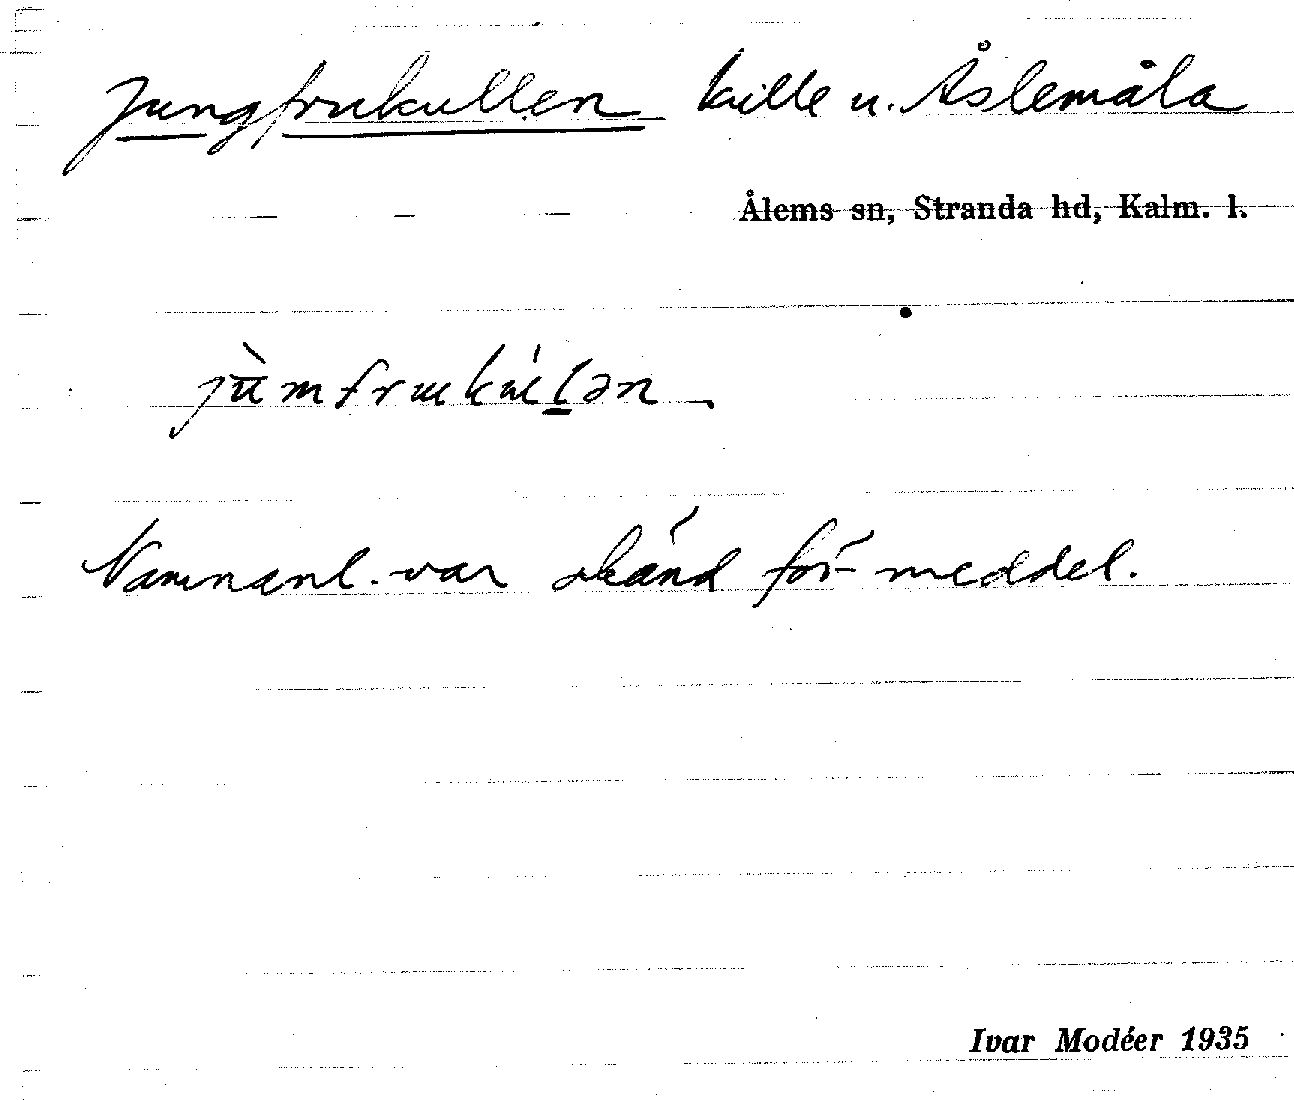 Jungfrukullen kulle u. Åslemåla
Ålems sn, Stranda hd, Kalm. l.
jùmfrukúlən
Namnanl. var okänd för meddel.
Ivar Modéer 1935